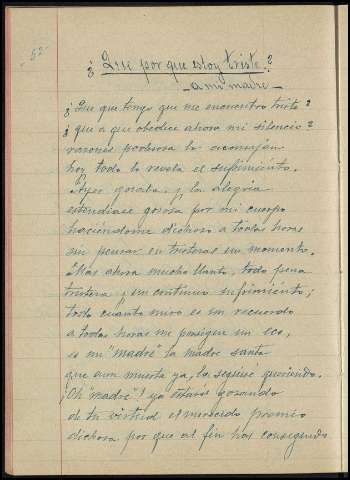 52
¿Que por que estoy triste?
- a mi madre -
¿Que que tengo que me encuentro triste?
¿que a que obedece ahora mi silencio?
razones lo aconsejan
hoy todo lo revela el sufrimiento.
Ayer gozaba, y la alegria
estendiase gozosa por mi cuerpo
haciendome dichoso a todas horas
sin pensar en tristezas un momento.
Mas ahora mucho llanto, todo pena
tristeza y un continuo sufrimiento;
todo cuanto miro es un recuerdo
a todas horas me persigue un eco,
es mi "madre" la madre santa
que aun muerta ya, la seguire queriendo.
¡Oh "madre"! ya estarás gozando
de tu virtud el merecido premio
dichosa por que al fin has conseguido